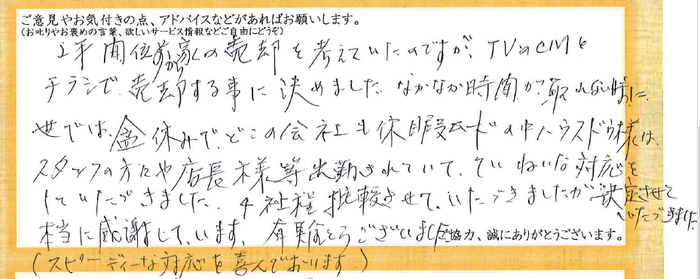 ご意見やお気付きの点、アドバイスなどがあればお願いします。
(お叱りやお褒めの言葉、欲しいサービス情報などご自由にどうぞ)
2年間位前から家の売却を考えていたのですが、TVのCMと
チラシで売却する事に決めました なかなか時間が取れない時に、
世では、盆休みで、どこの会社も休暇ムードの中ハウスドゥ様は、
スタッフの方々や店長様等出勤されていて、ていねいな対応を
していただきました、4社程比較させて、いただきましたが決定させて
いただきました
本当に感謝しています、有難とうございました
ご協力、誠にありがとうございます。
(スピーディーな対応を喜んでおります)